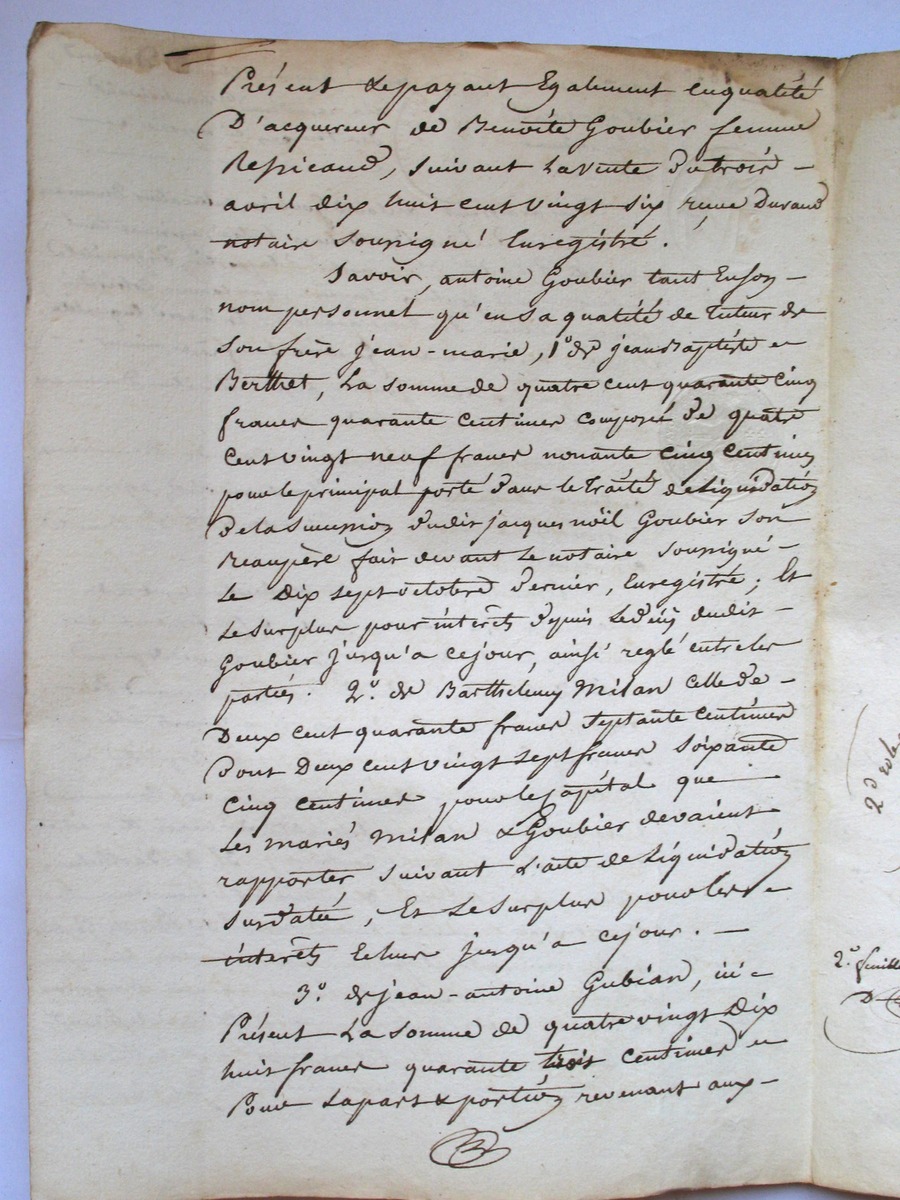 Présent & epayant Egalement enqualité
D'acquereur de Benoite Goubier femme
Ressicaud, suivant lavente dutrois
avril dix huit cent vingt six reçue Durand
notaire soussigné Enregistré.
Savoir, antoine Goubier tant Enson
nom personnel qu'en sa qualité de tuteur de
son frère jean-marie, 1º de jean Baptiste
Berthet, La somme de quatre cent quarante cinq
francs quarante centimes composé de quatre
cent vingt neuf francs nonante cinq centimes
pour le principal porté dans le traité de Liquidation
de la succession dudit jacques noël Goubier son
Beaupère fait devant le notaire soussigné
Le dix sept octobre dernier, Enregistré; Et
Le surplus pour intérêts depuis ledécès dudit
Goubier jusqu'a cejour, ainsi reglé entre les
parties. 2º de Barthelemy Milan celle de
Deux cent quarante francs septante centimes
dont Deux cent vingt sept francs soixante
cinq centimes pour le capital que
Les mariés Milan & Goubier devaient
rapporter suivant L'acte de Liquidation
susdaté, Et Le surplus pour les
intérêts Echus jusqu'a cejour.
3º de jean-antoine Gubian, ici
Présent La somme de quatre vingt dix
huit francs quarante trois centimes
Pour La part & portion revenant aux
2e feuille